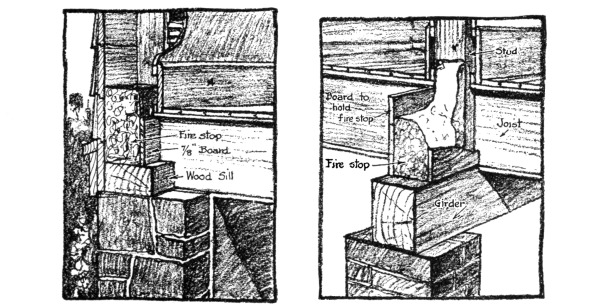 Fire stop
7/8" Board
Wood Sill
Stud
Board to
hold
fire stop
Joist
Fire stop
Girder